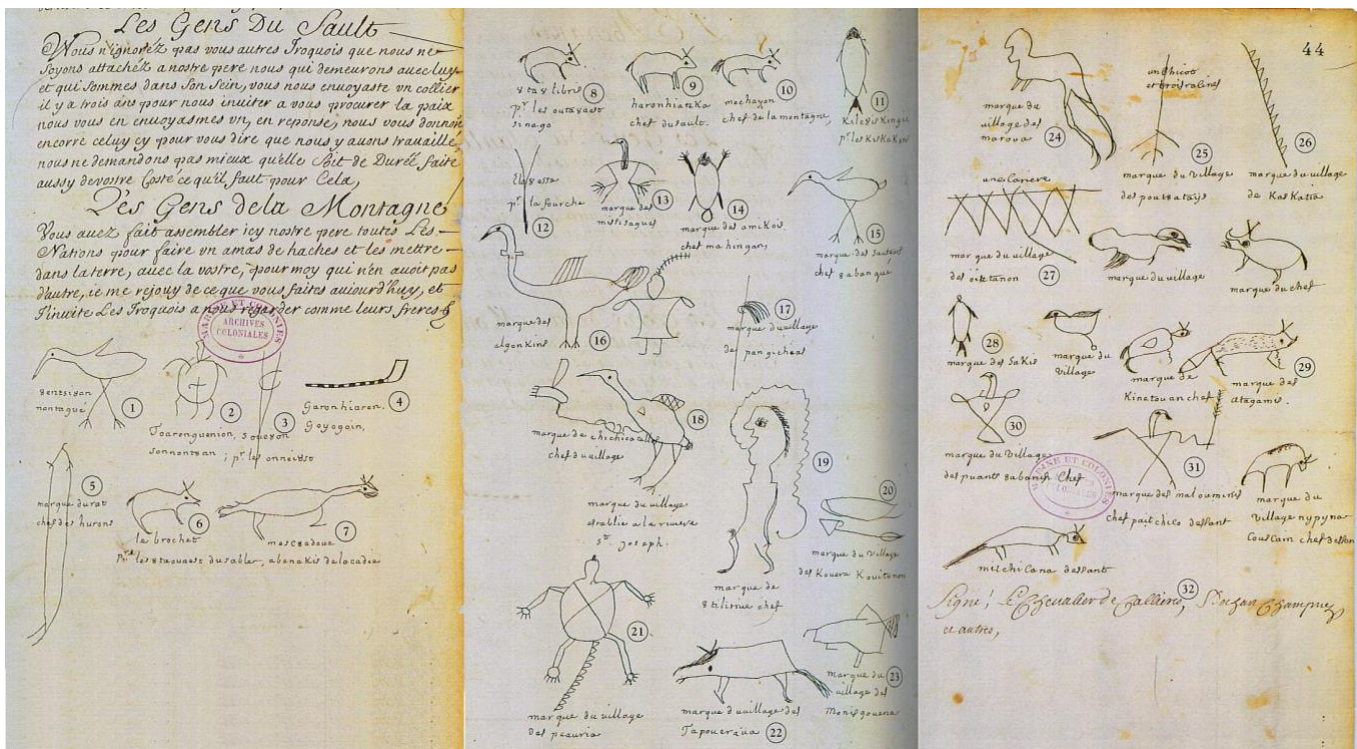 Les Gens Du Sault
Vous n'ignorez pas vous autres Iroquois que nous ne
soyons attachez a nostre pere nous qui demeurons avec luy
et qui sommes dans son sein, vous nous envoyaste un collier
il y a trois ans pour nous inviter a vous procurer la paix
nous vous en envoyasmes un, en reponse, nous vous donnons
encorre celuy cy pour vous dire que nous y avons travaillé,
nous ne demandons pas mieux qu'elle soit de Durée, faite
aussy de vostre Costé ce qu'il faut pour Cela,
Les Gens de la Montagne
Vous avez fait assembler icy nostre pere toutes Les
Nations pour faire un amas de haches et les mettre
dans la terre, avec la vostre, pour moy qui n'en avoit pas
d'autre, ie me rejouy de ce que vous faites aujourd'huy, et
J'invite Les Iroquois a nous regarder comme leurs freres
MARINE ET COLONIES
ARCHIVES
COLONIALES
1
2
Toarenguenion,
sonnontuan
3
; pr les onneiost
4
Garonhiaron.
Goyogoin,
5
marque du rat
chef des hurons
6
le brochet
7
abenakis delacadie
8
pr les outaouest
sinago
9
haronhiateka
chef du sault.
10
mechayon
chef de la montagne,
11
pr les KisKaKons
12
pr la fourche
13
marque des
missisagues
14
marque des amikois.
chef mahingan,
15
marque des sauteurs
chef 8abangué
16
marque des
algonkins
17
marque du village
de pangicheas
18
marque de chichicatalo
chef du village
marque du village
establie a la riviere
st. joseph.
19
marque de
chef
20
marque du village
des Kouera Kouitanon
21
marque du village
des peauria
22
marque d uvillage des
Tapouer8a
23
marque du
village des
Monisgouena
44
24
marque du
village des
maroua
un chicot
et trois racines
25
marque du Village
des pouteatays
26
marque du village
de KasKatia
27
marque du village
des 8iatanon
marque du village
marque du chef
28
marque des Sakis
marque du
village
marque de
Kinetouan chef
29
marque des
atagamis.
30
marque du Village
des puant 8abanis Chef
31
marque des maloumines
chef paitchico dessant
marque du
village nypyna
Couscam chef dessan
melchicana dessant
32
Signé; le Chevalier de Callieres,
et autres,